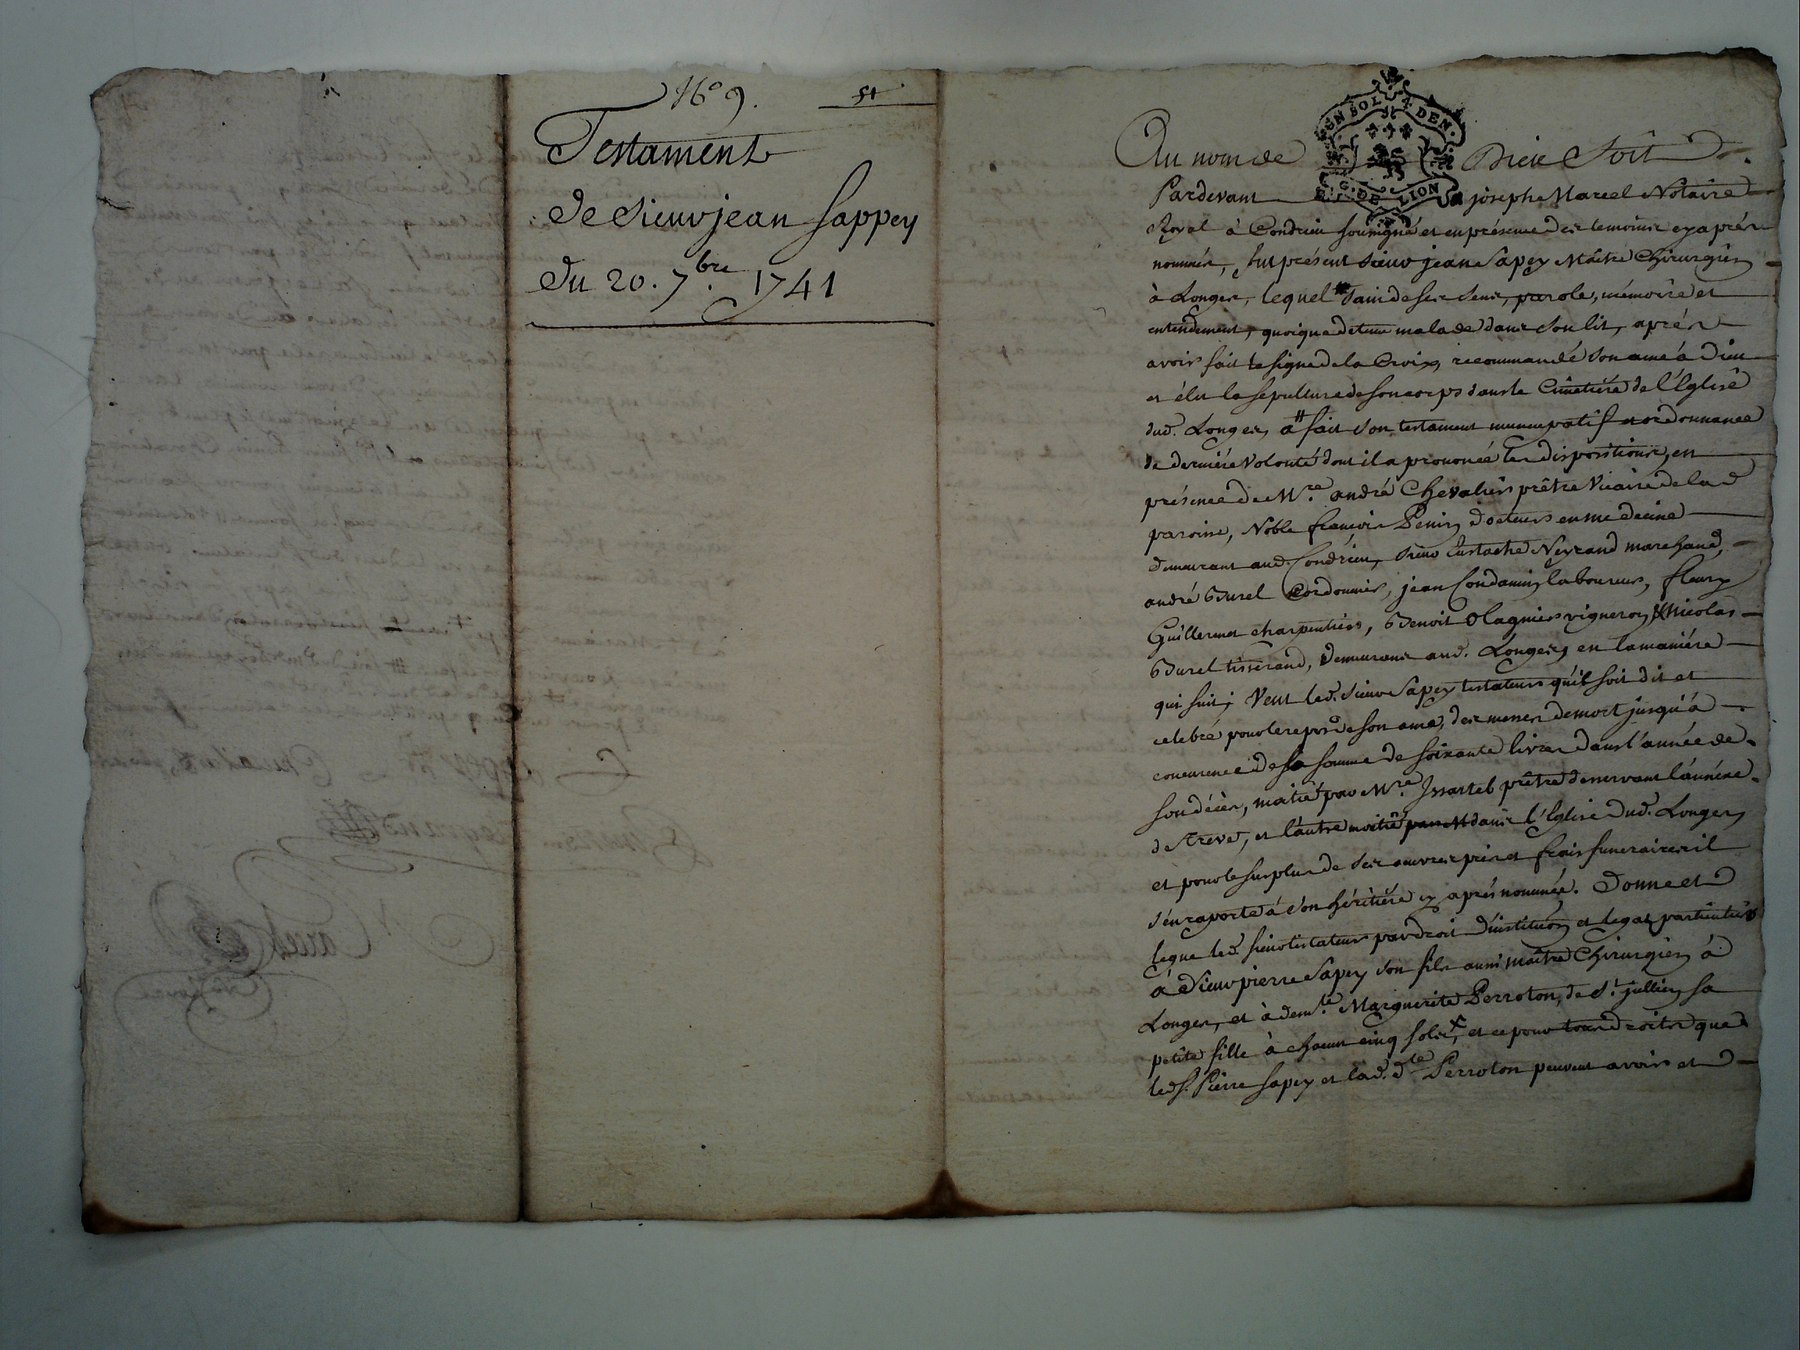 N.° 9.
Testament
de Sieur jean Sappey
du 20. 7.bre 1741
UN SOL 4. DEN.
G. DE LION
Au nom de Dieu Soit
Pardevant joseph Marcel Notaire
Royal à Condrieu soussigné et en présence des temoins cy aprés
nommés, fut présent Sieur jean Sapey Maître Chirurgien
à Longes, lequel Sain de ses sens, parole, mémoire et
entendement, quoique detenu malade dans son lit, aprés
avoir fait le signe de la Croix, recommandé son ame à Dieu
et élu la sépulture de son corps dans le Cimetiére de l'Eglise
dud. Longes, a fait son testament nuncupatif et ordonnance
de derniére volonté dont il a prononcé les dispositions, en
présence de M.re andré Chevalier prêtre Vicaire de lad
paroisse, Noble françois Penin docteur en medecine
demeurant aud. Condrieu, Sieur Eustache Neyrand marchand,
andré Burel Cordonnier, jean Condamin laboureur, fleury
Guillermet charpentier, Benoit Olagnier vigneron & Nicolas
Burel tisserand, demeurans aud. Longes, en la maniére
qui suit; Veut led. Sieur Sapey testateur qu'il soit dit et
celebré pour le repos de son ame, des messes de mort jusqu'à
concurrence de la somme de soixante livres dans l'année de
son décès, moitié par M.re Issartel prêtre desservant l'annexe
de Treve, et l'autre moitié dans l'Eglise dud. Longes,
et pour le surplus de ses œuvres pies et frais funeraires il
s'en raporte à son héritiére cy aprés nommée. Donne et
legue led. sieur testateur par droit d'institution et legat particulier
à Sieur pierre Sapey son fils aussi maître Chirurgien à
Longes, et à dem.lle Marguerite Perroton, de S.t jullien sa
petite fille à chacun cinq sols, et ce pour tous droits que
led. S. Pierre Sapey et lad. d.lle Perroton peuvent avoir et